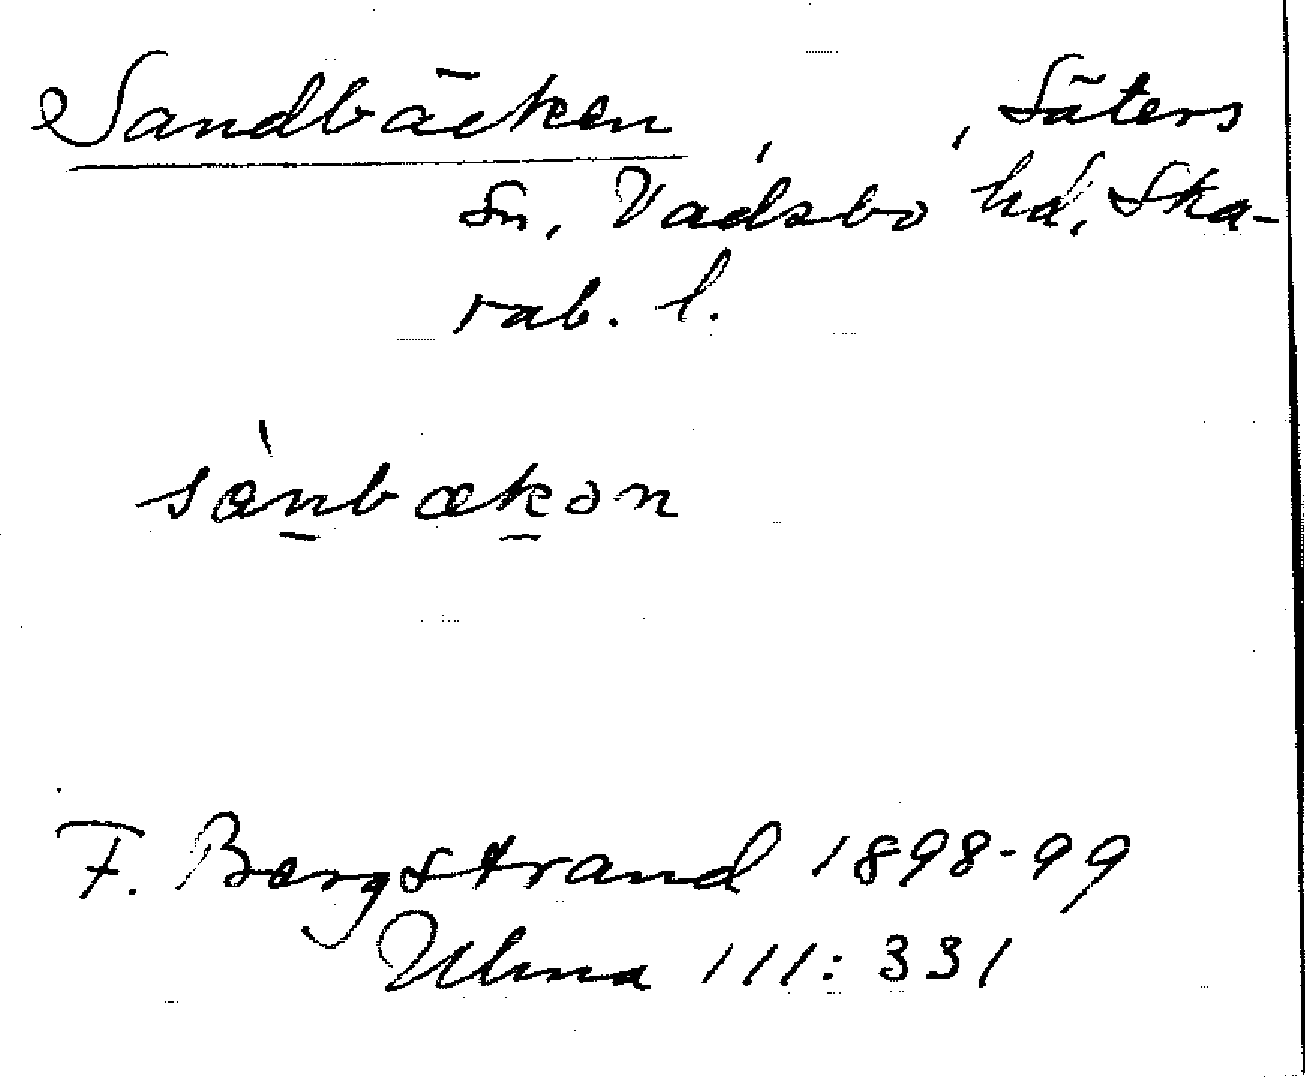 Sandbäcken , , Säters
sn, Vadsbo hd, Ska-
rab. l.
sànbækən
F. Bergstrand 1898-99
Ulma 111:331